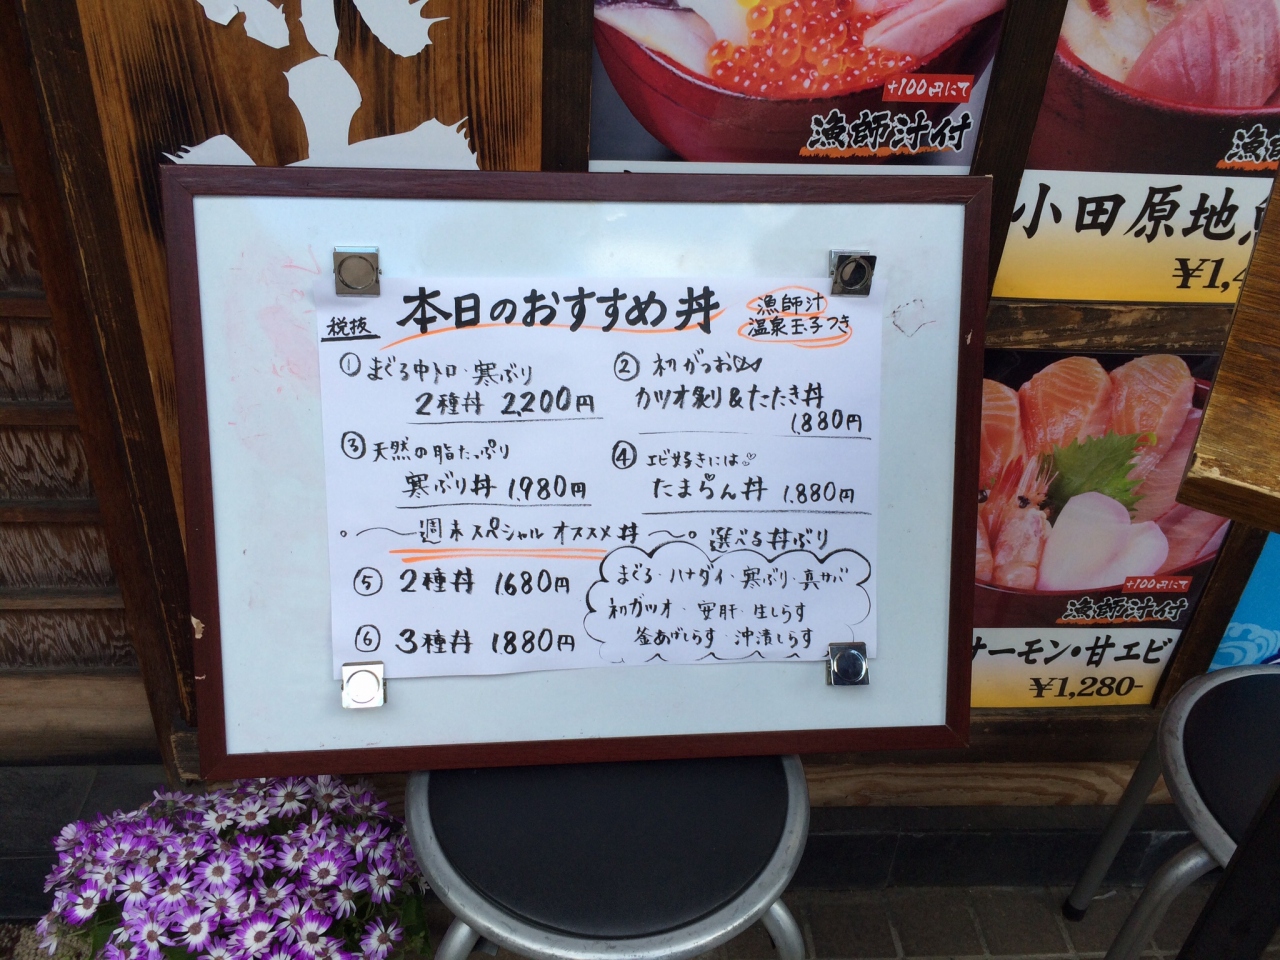 +100円にて
漁師汁付
漁師
小田原地魚
¥1,4
税抜
本日のおすすめ丼
漁師汁
温泉玉子つき
① まぐろ中トロ・寒ぶり
2種丼 2,200円
② 初がつお
カツオ炙り&たたき丼
1,880円
③ 天然の脂たっぷり
寒ぶり丼 1,980円
④ エビ好きには♡
たまらん丼 1,880円
週末スペシャルオススメ丼
選べる丼ぶり
⑤ 2種丼 1680円
⑥ 3種丼 1,880円
まぐろ・ハナダイ・寒ぶり・真サバ
初ガツオ・安肝・生しらす
釜あげしらす・沖漬しらす
+100円にて
漁師汁付
サーモン・甘エビ
¥1,280-